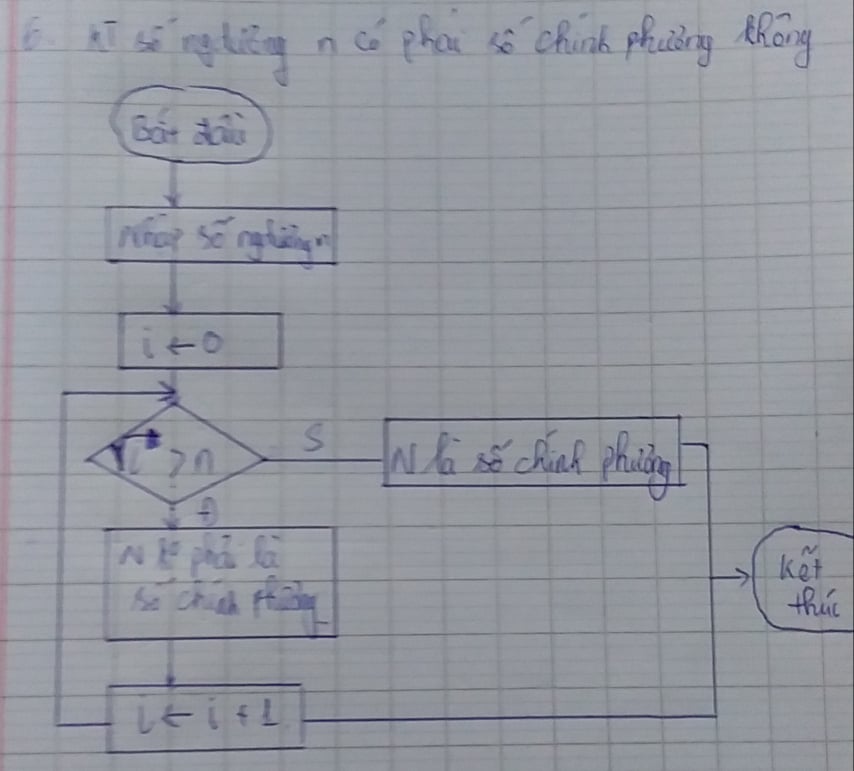 6. KT số nguyên n có phải số chính phương không
Bắt đầu
Nhập số nguyên n
i ← 0
> n
S
N là số chính phương
Đ
N k phải là
số chính phương
Kết
thúc
i ← i + 1